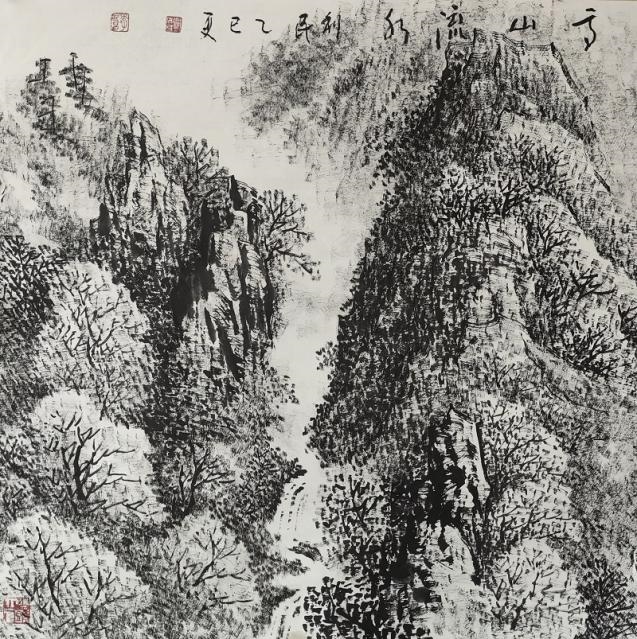 高山流水利民乙巳夏